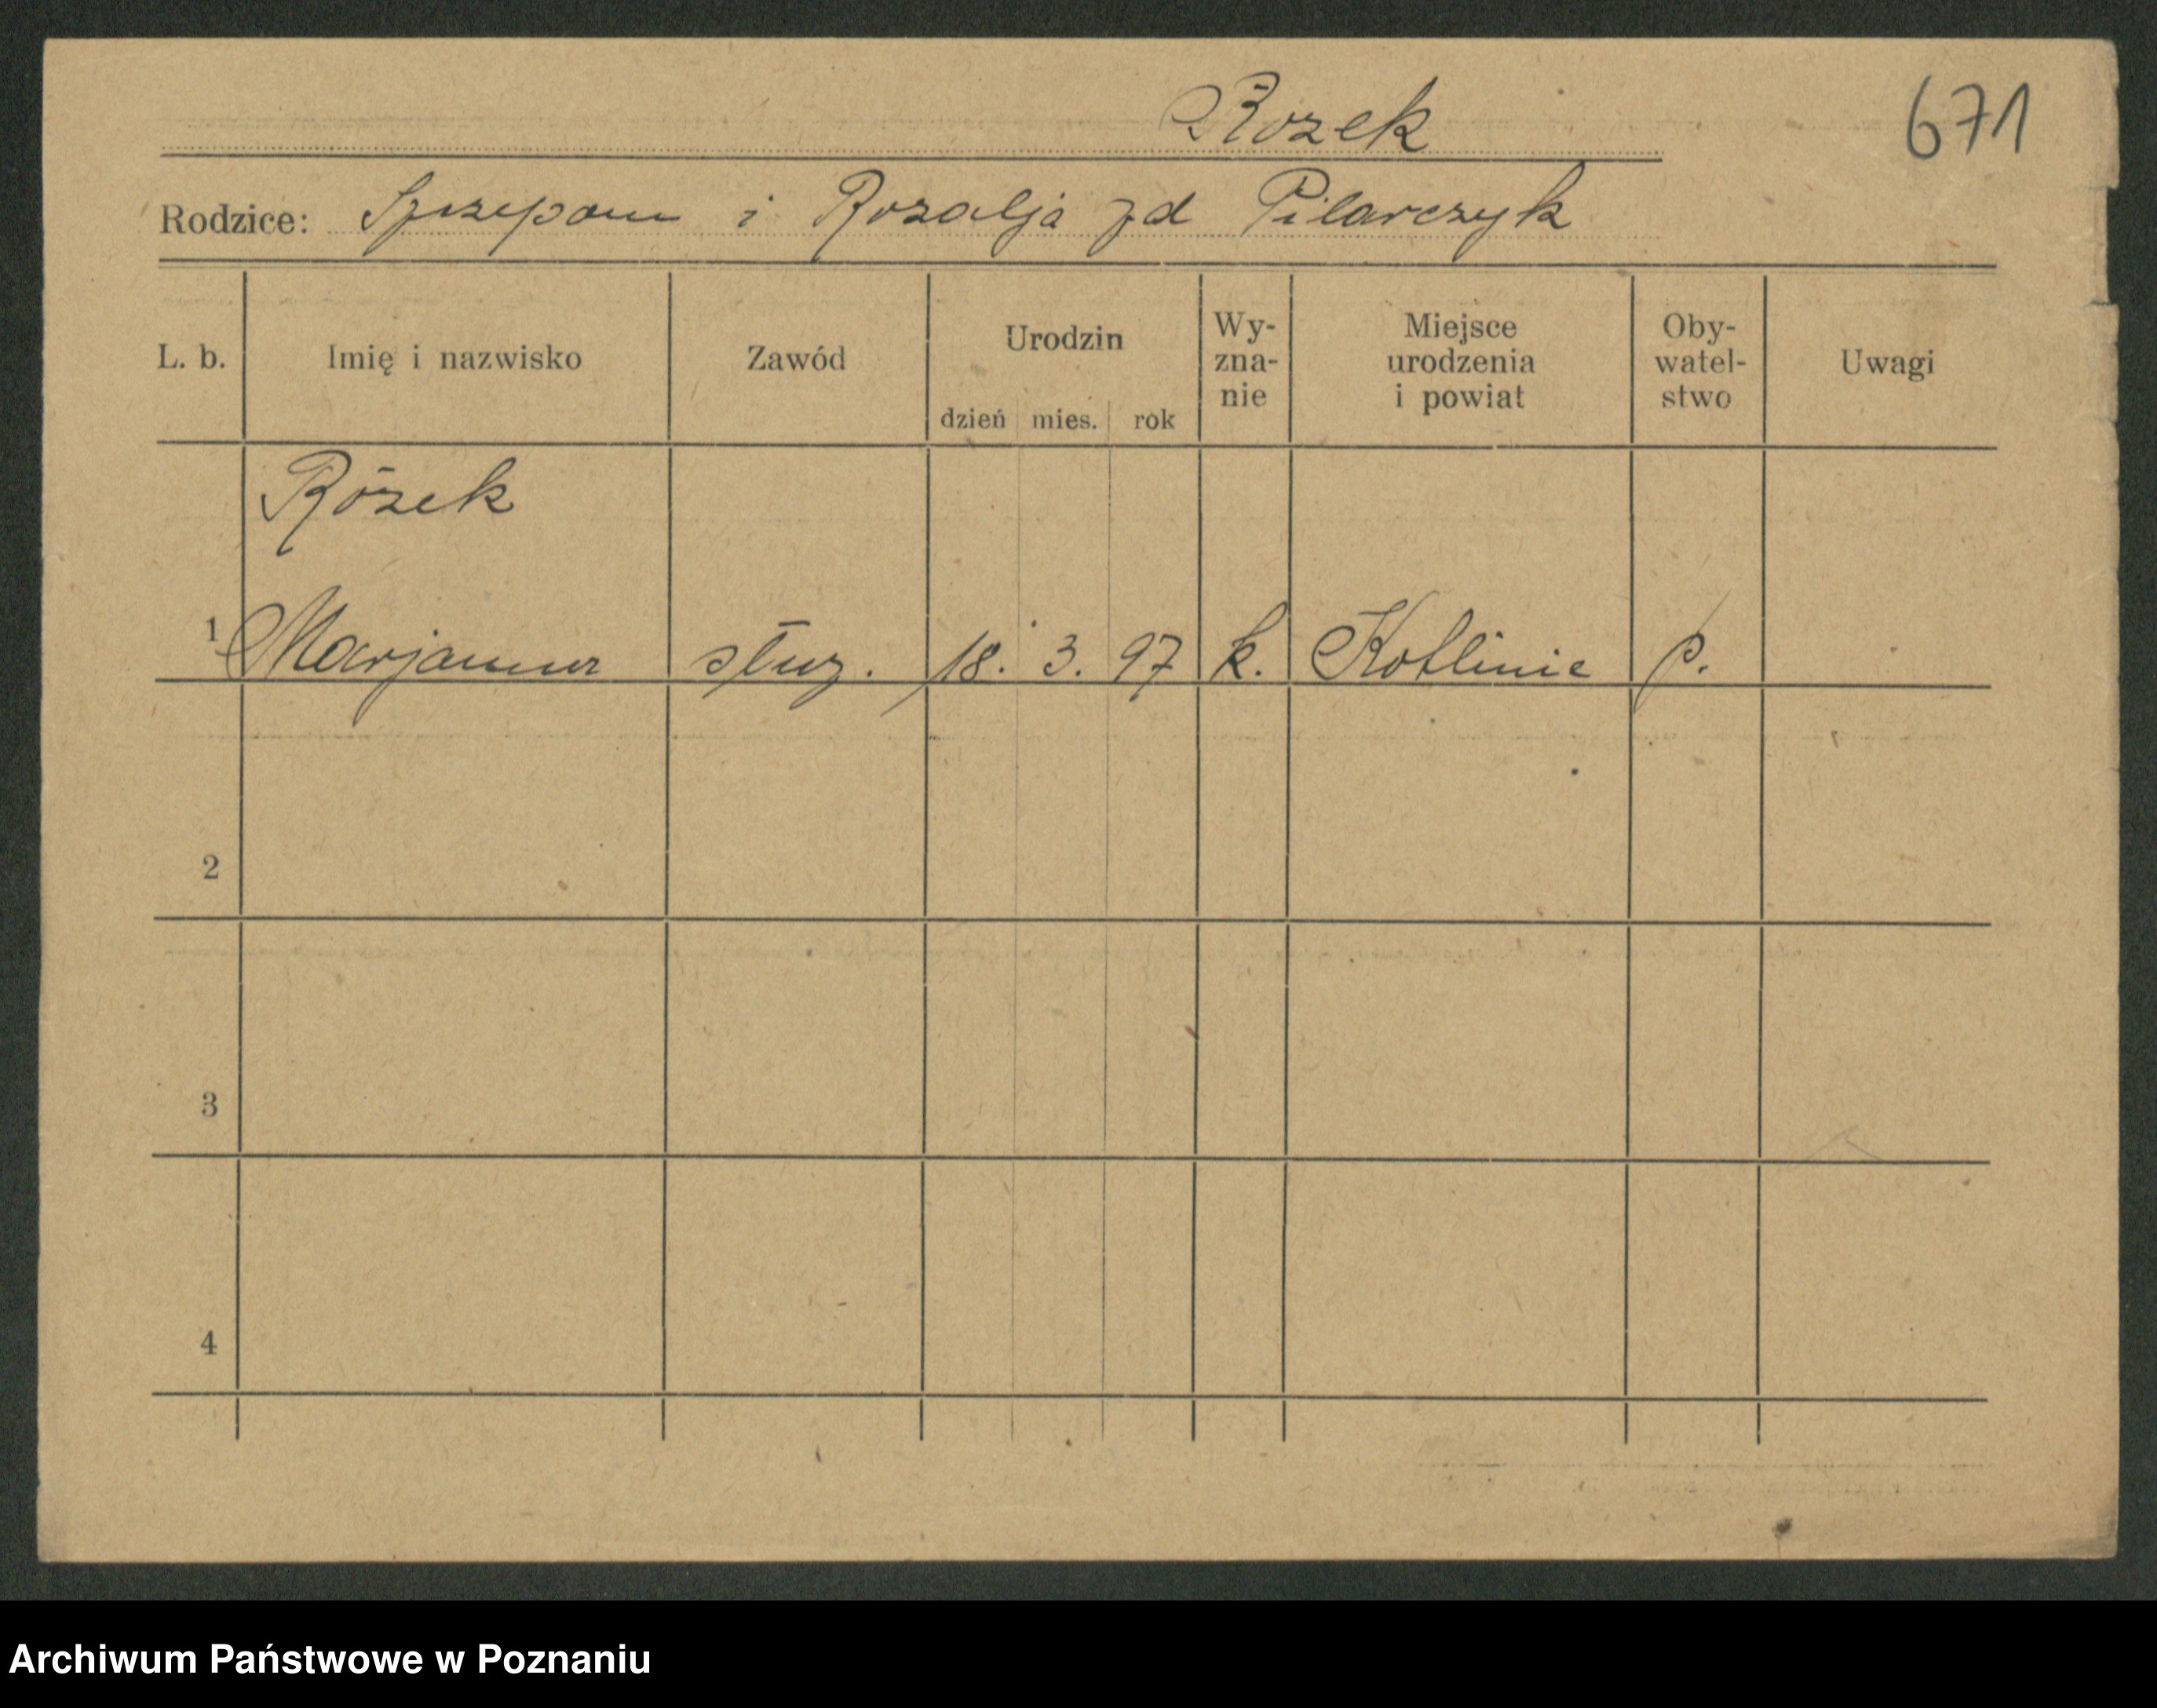 Rozek
671
Rodzice: Szczepan i Rozalja zd Pilarczyk
L. b. Imię i nazwisko Zawód Urodzin dzień mies. rok Wy-zna-nie Miejsce urodzenia i powiat Oby-watel-stwo Uwagi
Rózek
1 Marjanna służ. 18. 3. 97 k. Kotlinie p.
2
3
4
Archiwum Państwowe w Poznaniu